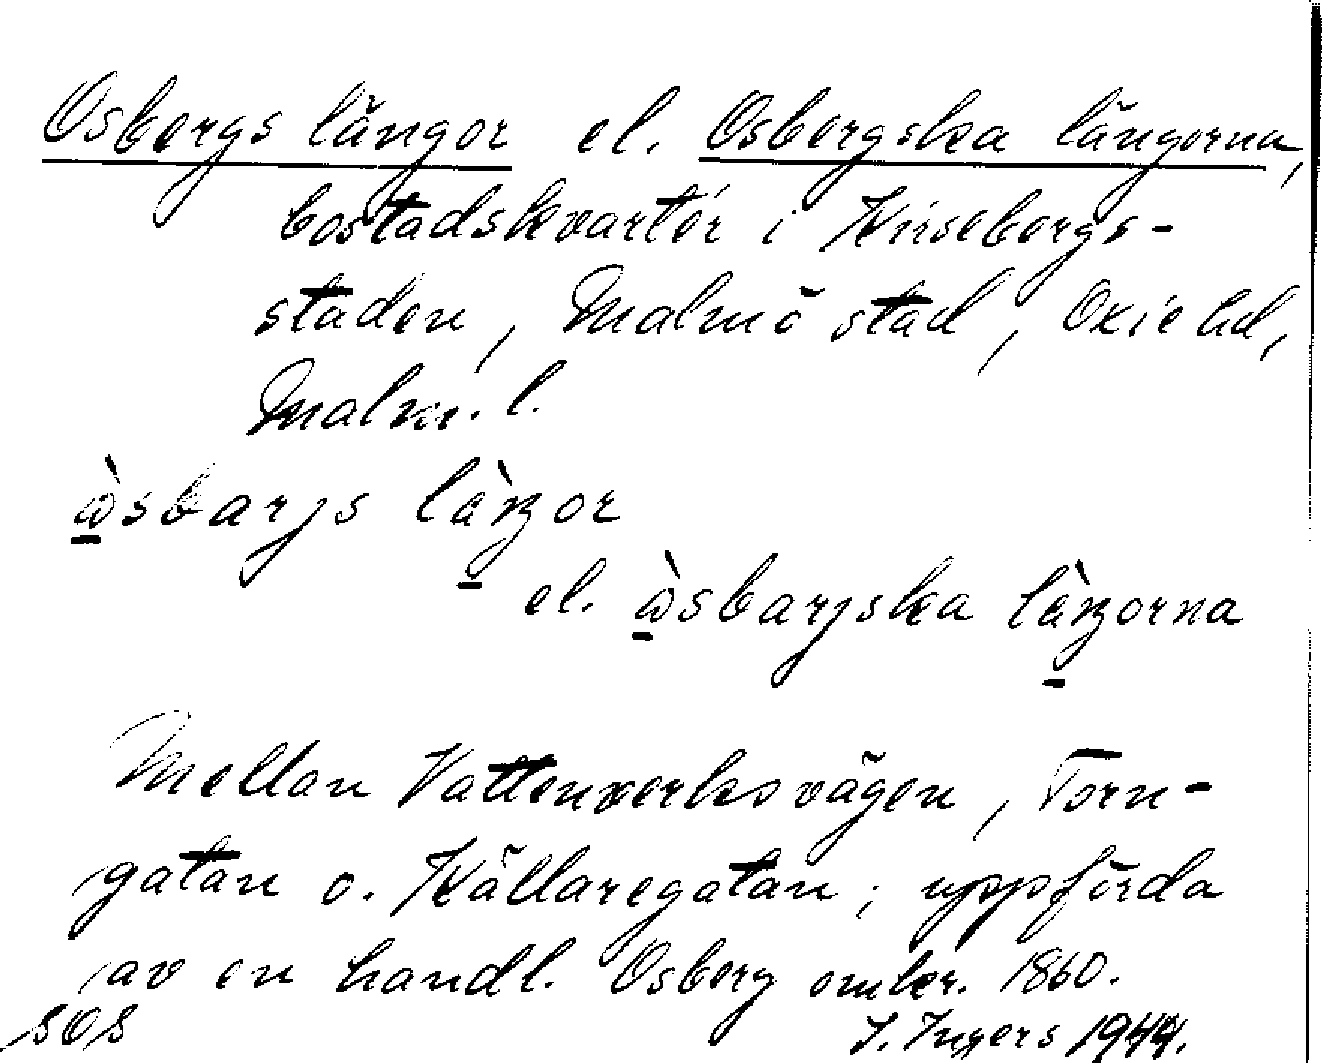 Osbergs längor el. Osbergska längorna,
bostadskvarter i Kirsebergs-
staden, Malmö stad, Oxie hd,
Malm. l.
ὼsbarjs là̱ŋor
el. ὼsbarjska là̱ŋorna
Mellan Vattenverksvägen, Torn-
gatan o. Källaregatan; uppförda
av en handl. Osberg omkr. 1860.
SOS I. Ingers 1944.